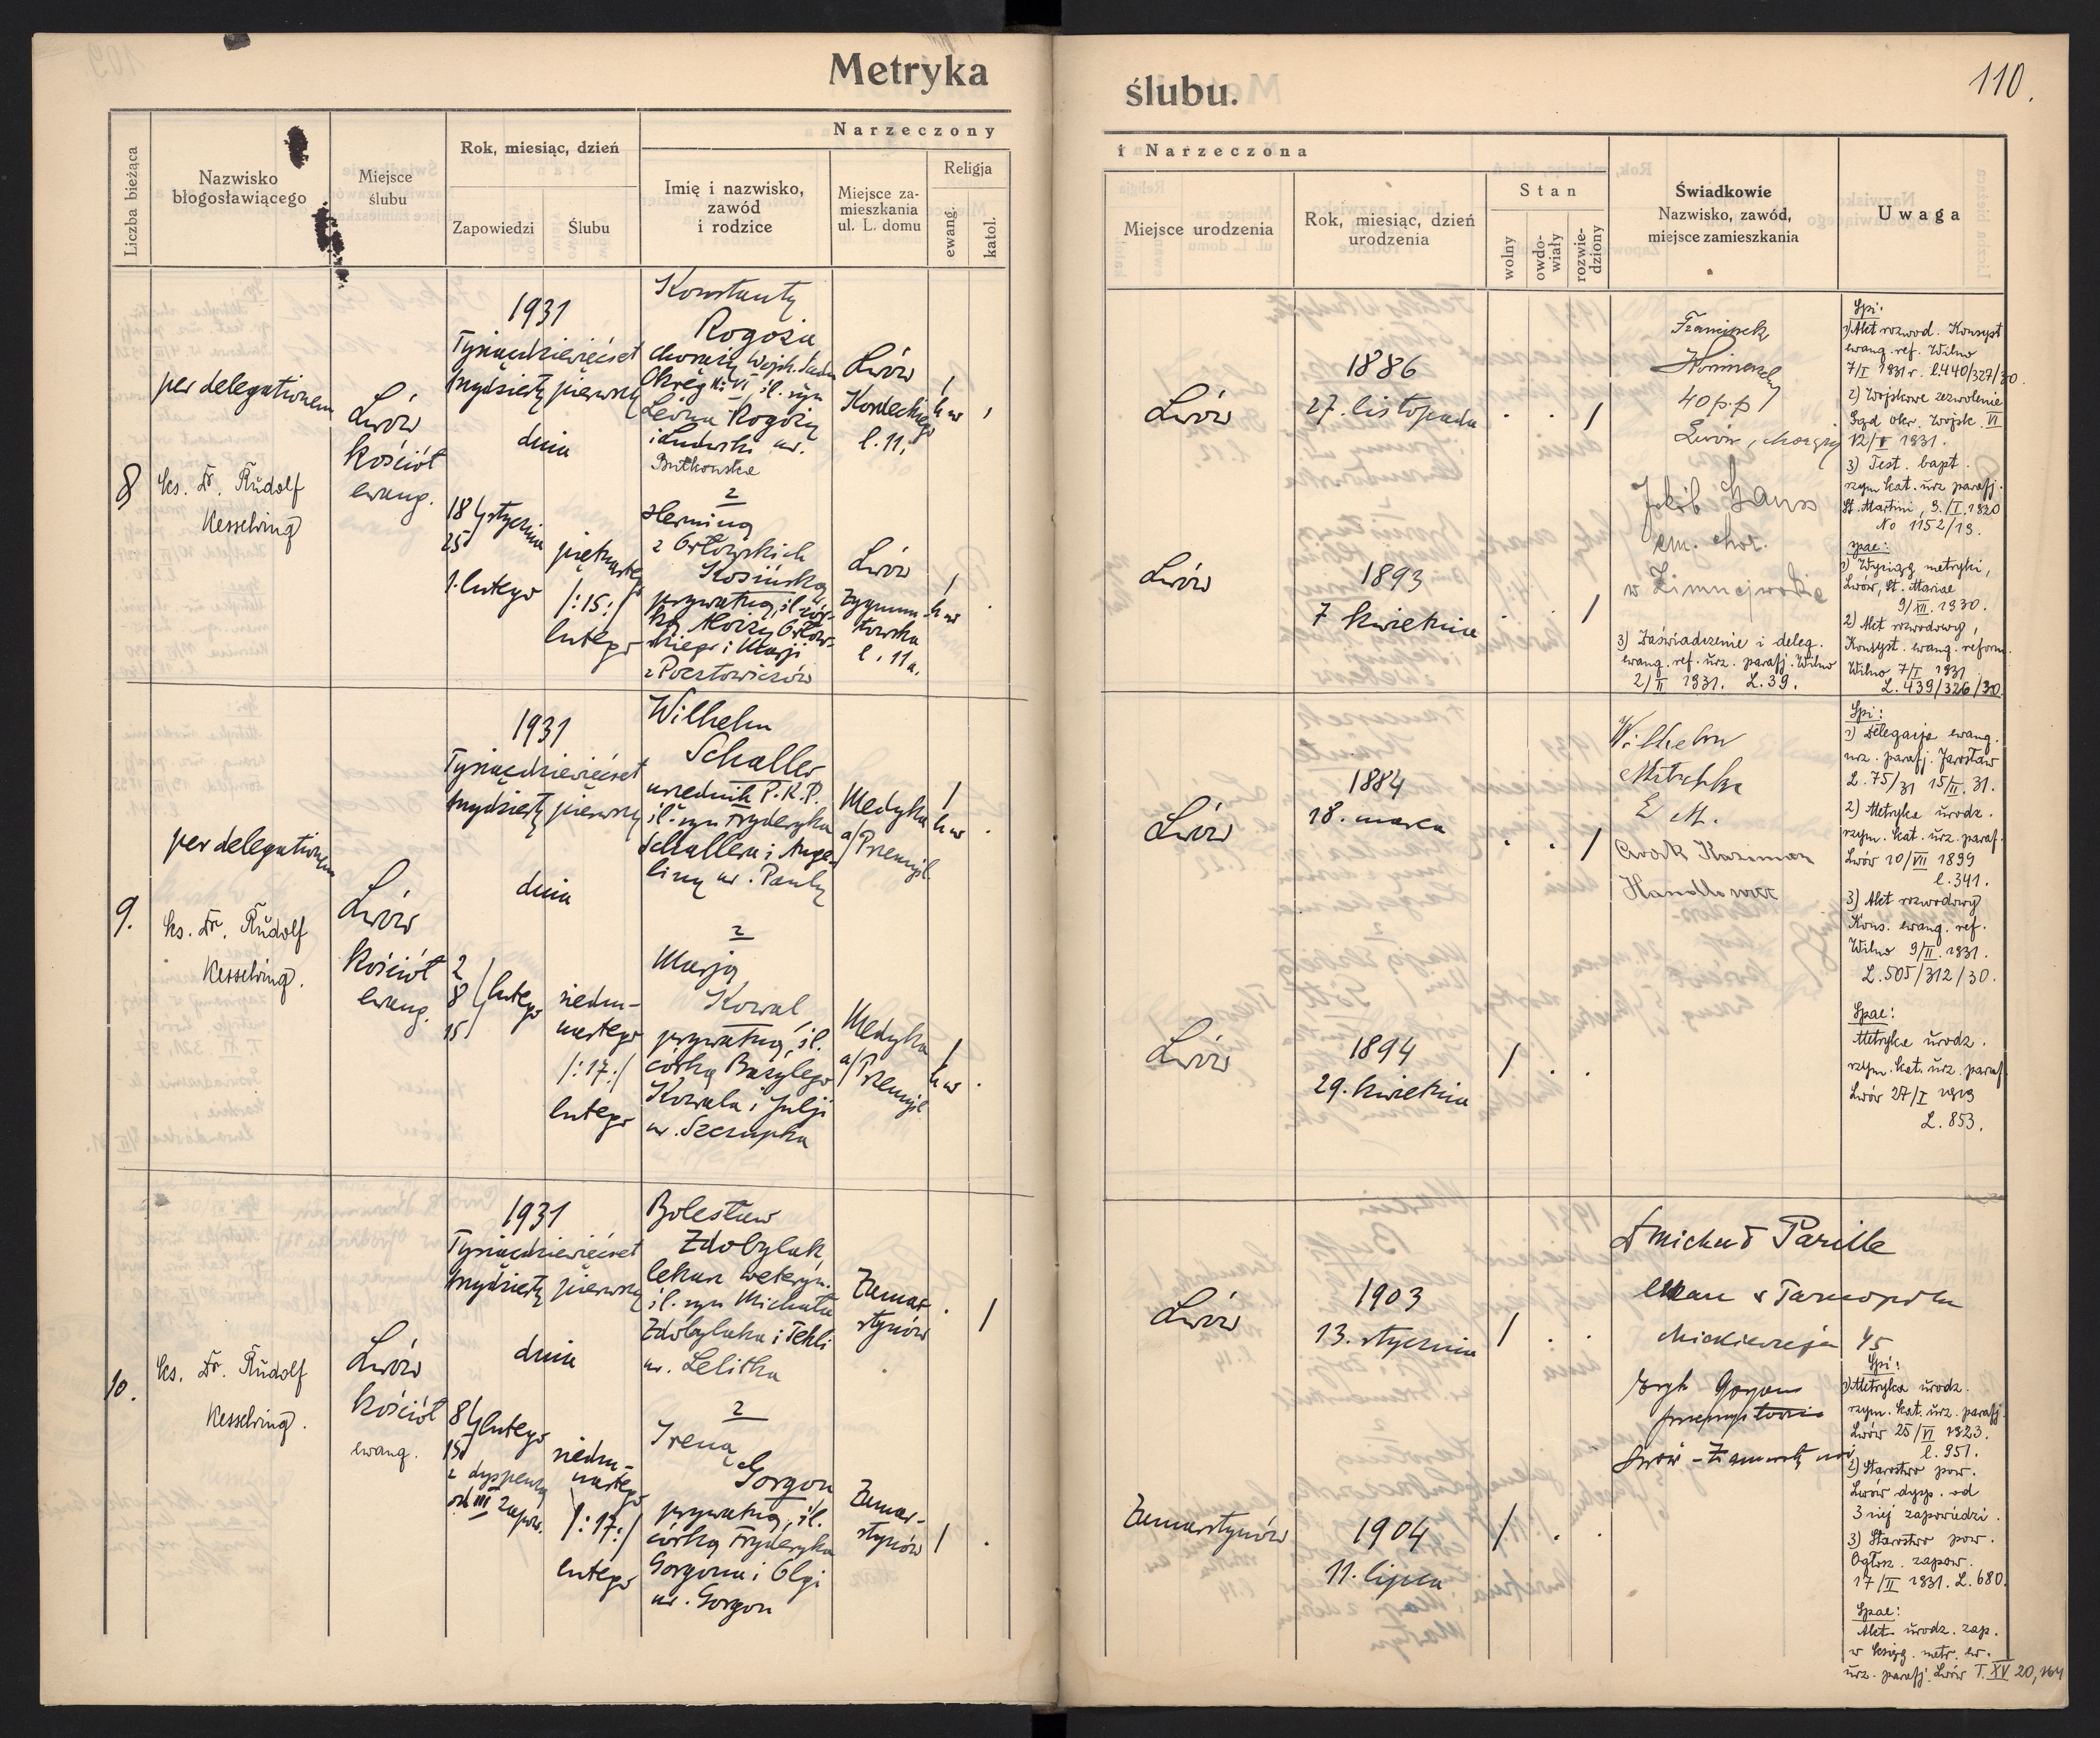 Metryka
ślubu.
110.
Narzeczony
i Narzeczona
Liczba bieżąca
Nazwisko
błogosławiącego
Miejsce
ślubu
Rok, miesiąc, dzień
Zapowiedzi
Ślubu
Imię i nazwisko,
zawód
i rodzice
Miejsce za-
mieszkania
ul. L. domu
Religja
ewang.
katol.
Miejsce urodzenia
Rok, miesiąc, dzień
urodzenia
Stan
wolny
owdo-
wiały
rozwie-
dziony
Świadkowie
Nazwisko, zawód,
miejsce zamieszkania
Uwaga
8
per delegationem
ks. Dr. Rudolf
Kesselring
Lwów
kościół
ewang.
1931
Tysiącdziewięćset
trzydzieśty pierwszy
dnia
18
25
stycznia
1. lutego
piętnastego
/:15:/
lutego
Konstanty
Rogoża
chorąży Wojsk. Sądu
Okręg. Nr VI, śl. syn
Leona Rogoży
i Ludwiki ur.
Butkowska
z
Herminą
z Orłowskich
Kosińską
prywatną, śl. cór-
ką
i Marji
z Pocztowiczów
Lwów
Kordeckiego
l. 11.
Lwów
Zygmun-
towska
l. 11a.
Lwów
1886
27. listopada
Lwów
1893
7 kwietnia
Franciszek
40 p.p
Lwów, chorąży
Jakób Hauss
em. chor.
w Zimnejwodzie
3) Zaświadczenie i deleg.
ewang. ref. urz. parafj. Wilno
2/II 1931. L. 39.
Spi:
1) Akt rozwod. Konsyst
ewang. ref. Wilno
7/I 1931 r. l. 440/327/30.
2) Wojskowe zezwolenie
Sąd okr. Wojsk. VI
12/II 1931.
3) Test. bapt.
rzym kat. urz parafj.
St. Martini, 3./I. 1920
No 1152/19.
Spae:
1) Wyciąg metryki,
Lwów, St. Mariae
9/XII. 1930.
2) Akt rozwodowy,
Konsyst. ewang. reform.
Wilno 7/I 1931.
L. 439/326/30.
9.
per delegationem
ks. Dr. Rudolf
Kesselring.
Lwów
kościół
ewang.
1931
Tysiącdziewięćset
trzydzieśty pierwszy
dnia
2
8
15
lutego
siedm-
nastego
/:17:/
lutego
Wilhelm
Schaller
urzędnik P.K.P.
śl. syn Fryderyka
Schallera i Ange-
liny ur. Pauly
z
Marją
Kowal
prywatną, śl.
córką Bazylego
Kowala i Julji
ur. Szczupka
Medyka
a/Przemyśl.
Medyka
a/Przemyśl
Lwów
1884
18. marca
Lwów
1894
29. kwietnia
Wilhelm
E M.
Kazimierz
Handlowiec
Spi:
1) Delegacja ewang.
urz. parafj. Jarosław
L. 75/31 15/II. 31.
2) Metryka urodz.
rzym. kat. urz. paraf.
Lwów 10/VII 1899
l. 341.
3) Akt rozwodowy
Kons. ewang. ref.
Wilno 9/II. 1931.
L. 505/312/30.
Spae:
Metryka urodz.
rzym. kat. urz. paraf.
Lwów 27/I 1919
L. 853.
10.
ks. Dr. Rudolf
Kesselring.
Lwów
kościół
ewang.
1931
Tysiącdziewięćset
trzydzieśty pierwszy
dnia
8
15
lutego
z dyspenzą
od III zapow.
siedm-
nastego
/:17:/
lutego
Bolesław
Zdobylak
lekarz weteryn.
śl. syn Michała
Zdobylaka i Tekli
ur. Lelitka
z
Ireną
Gorgon
prywatną, śl.
córką Fryderyka
Gorgona i Olgi
ur. Gorgon
Zamar-
stynów
Zamar-
stynów
Lwów
1903
13. stycznia
Zamarstynów
1904
11. lipca
Dr Michał
lekarz z Tarnopola
Mickiewicza 45
Eryk Gorgon
przemysłowiec
Lwów-Zamarstynów
Spi:
1) Metryka urodz.
rzym. kat. urz. parafj.
Lwów 25/VI 1923.
l. 951.
2) Starostwo pow.
Lwów dysp. od
3 ciej zapowiedzi.
3) Starostwo pow.
Ogłosz. zapow.
17/II 1931. L. 680.
Spae:
Akt urodz. zap.
w księg. metr. ew.
urz. parafj. Lwów T. XV 20,